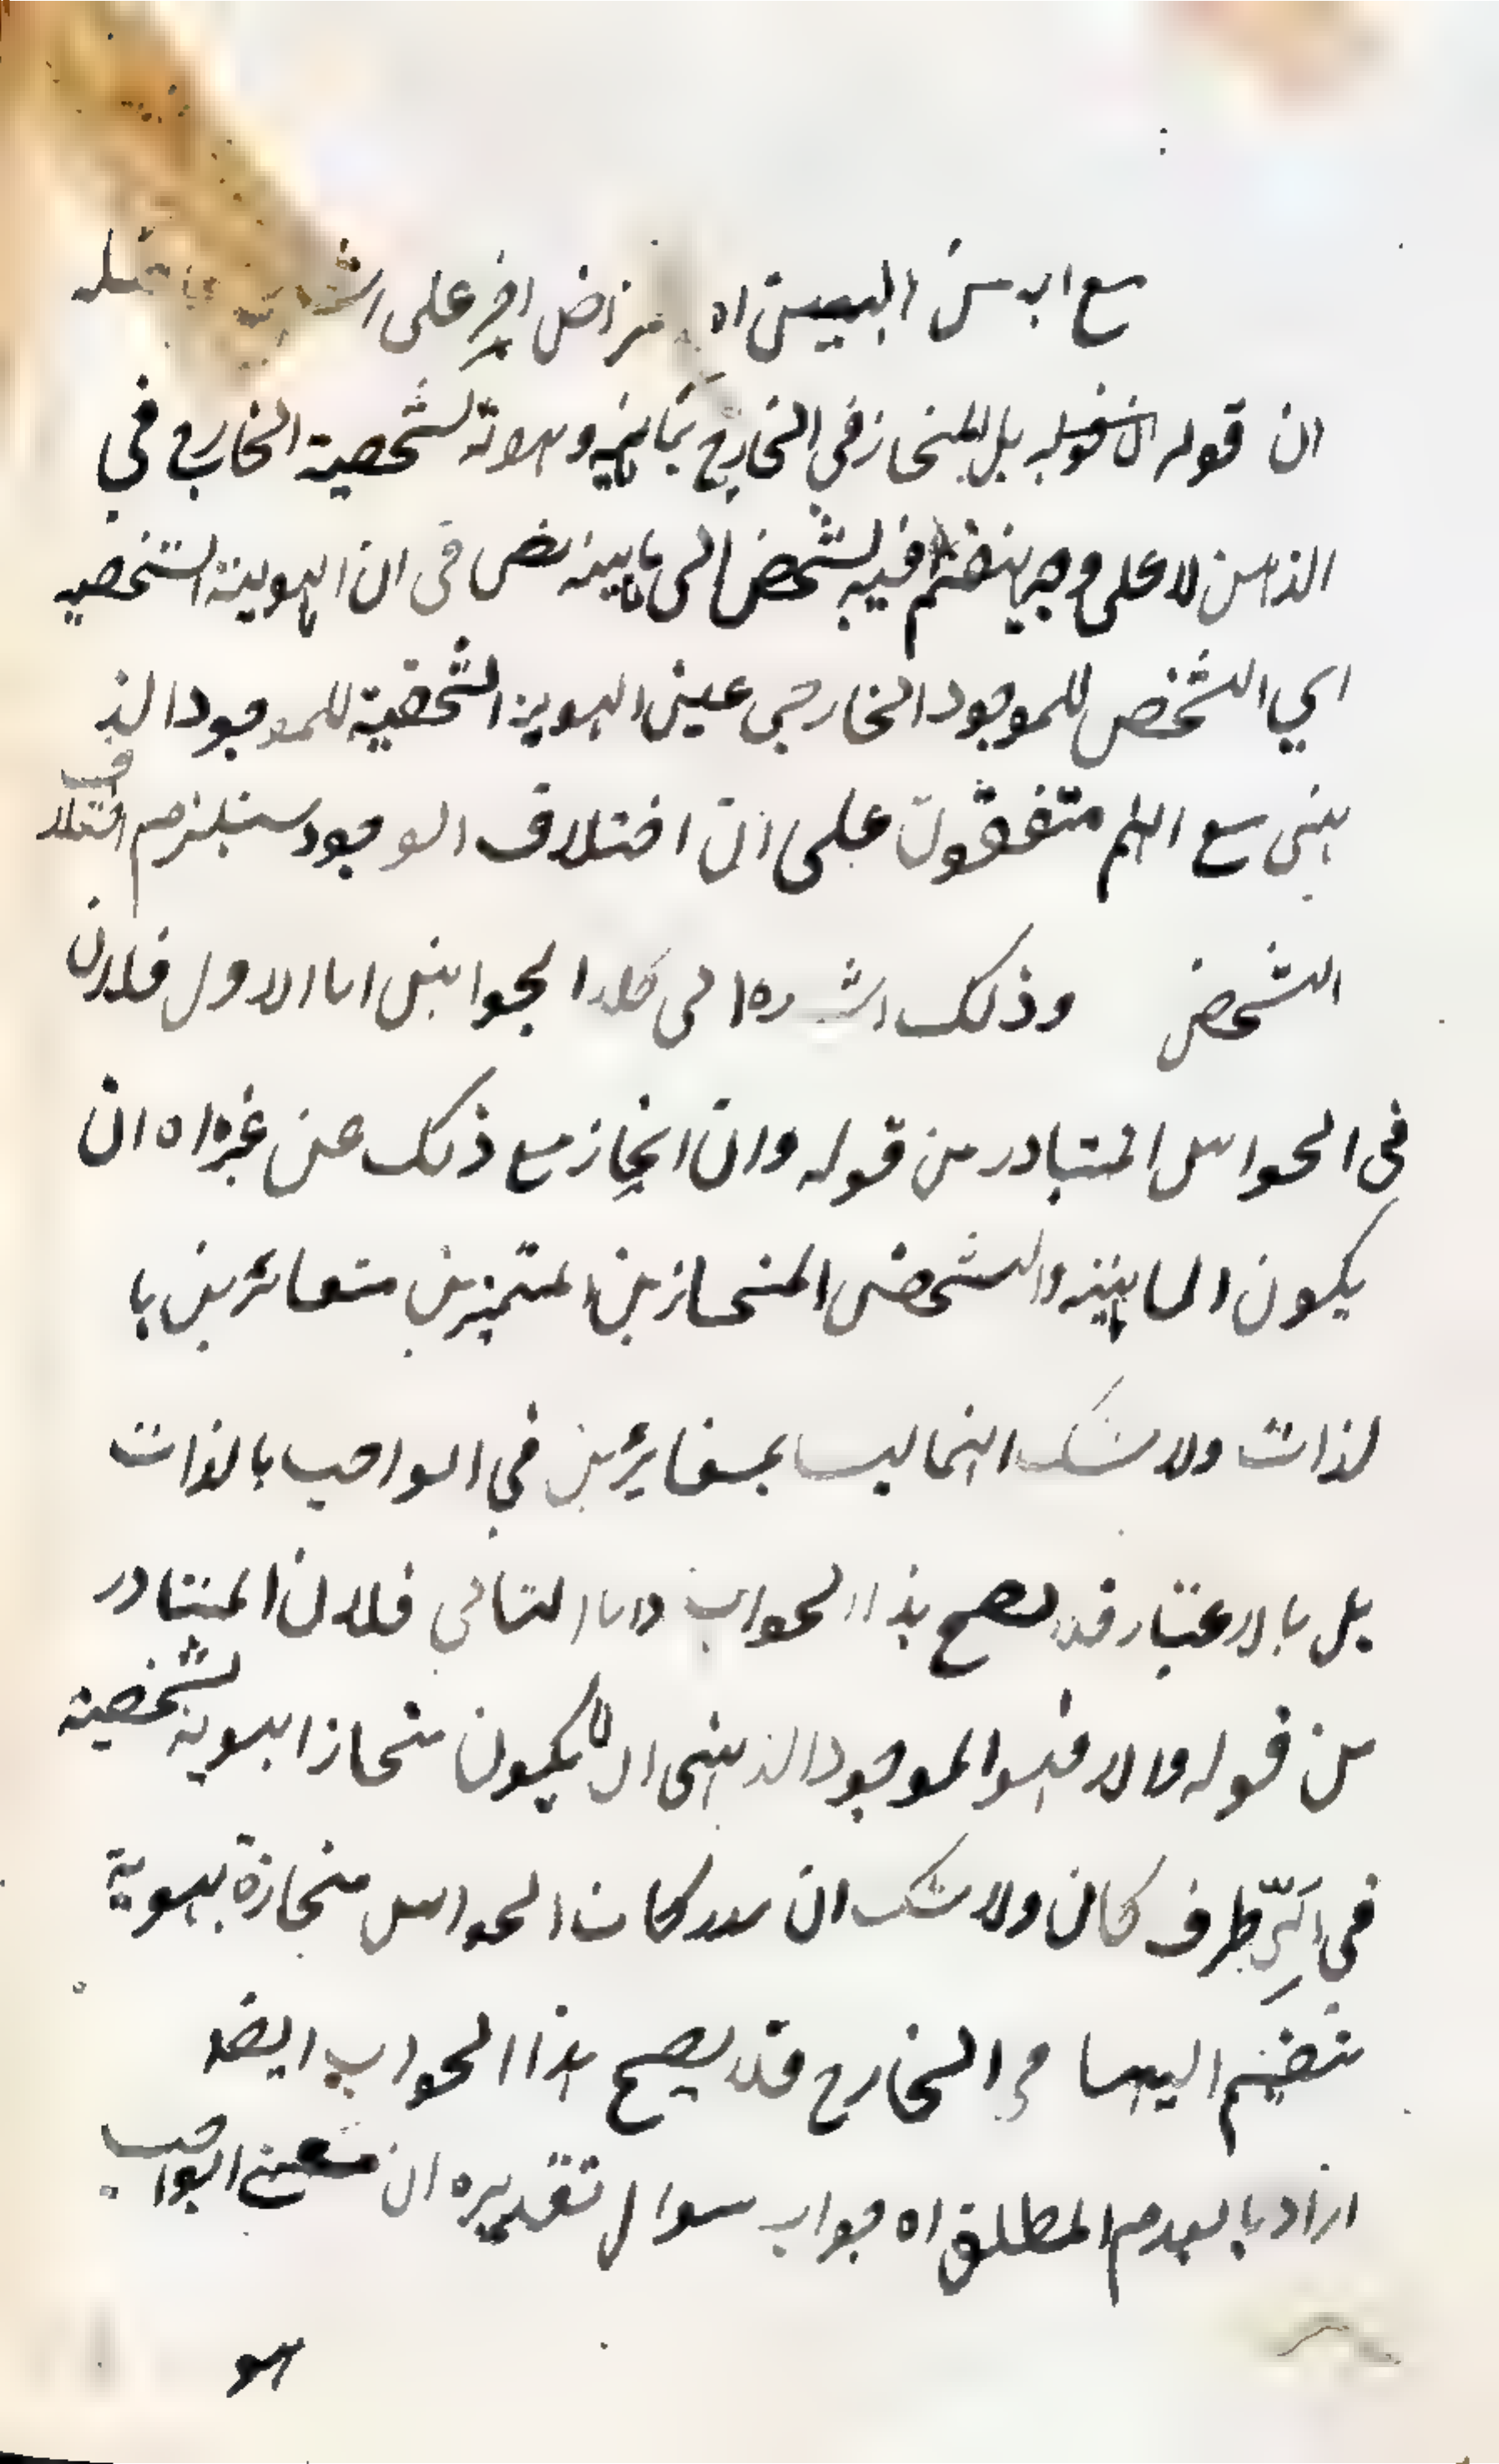 مع اى من البعس اه اض اخر على
ان قوله ان قوله بل المنحاز في الخارج بماهية وهوية شخصية الخارج في
الذهن لا على وجه ينضم فيه التشخص الى ماهية نص في ان الهوية الشخصية
اي التشخص للموجود الخارجي عين الهوية الشخصية للموجود الذ
هني مع انهم متفقون على ان اختلاف الوجود يستلزم اختلاف
التشخص وذلك اشاره الى كلا الجوابين اما الاول فلان
في الحواس المتبادر من قوله وان انحاز مع ذلك عن غيره اه ان
يكون الماهية والتشخص المنحازين المتميزين متغائرين با
لذات ولا شك انهما ليسا بمتغايرين في الواجب بالذات
بل بالاعتبار فلا يصح هذا الجواب واما الثاني فلان المتبادر
من قوله والا فهو الموجود الذهني ان لا يكون منحازا بهوية شخصية
في اي ظرف كان ولا شك ان مدركات الحواس منحازة بهوية
تنضم اليها في الخارج فلا يصح هذا الجواب ايضا
اراد بالعدم المطلق اه جواب سوال تقديره ان الواجب
هو